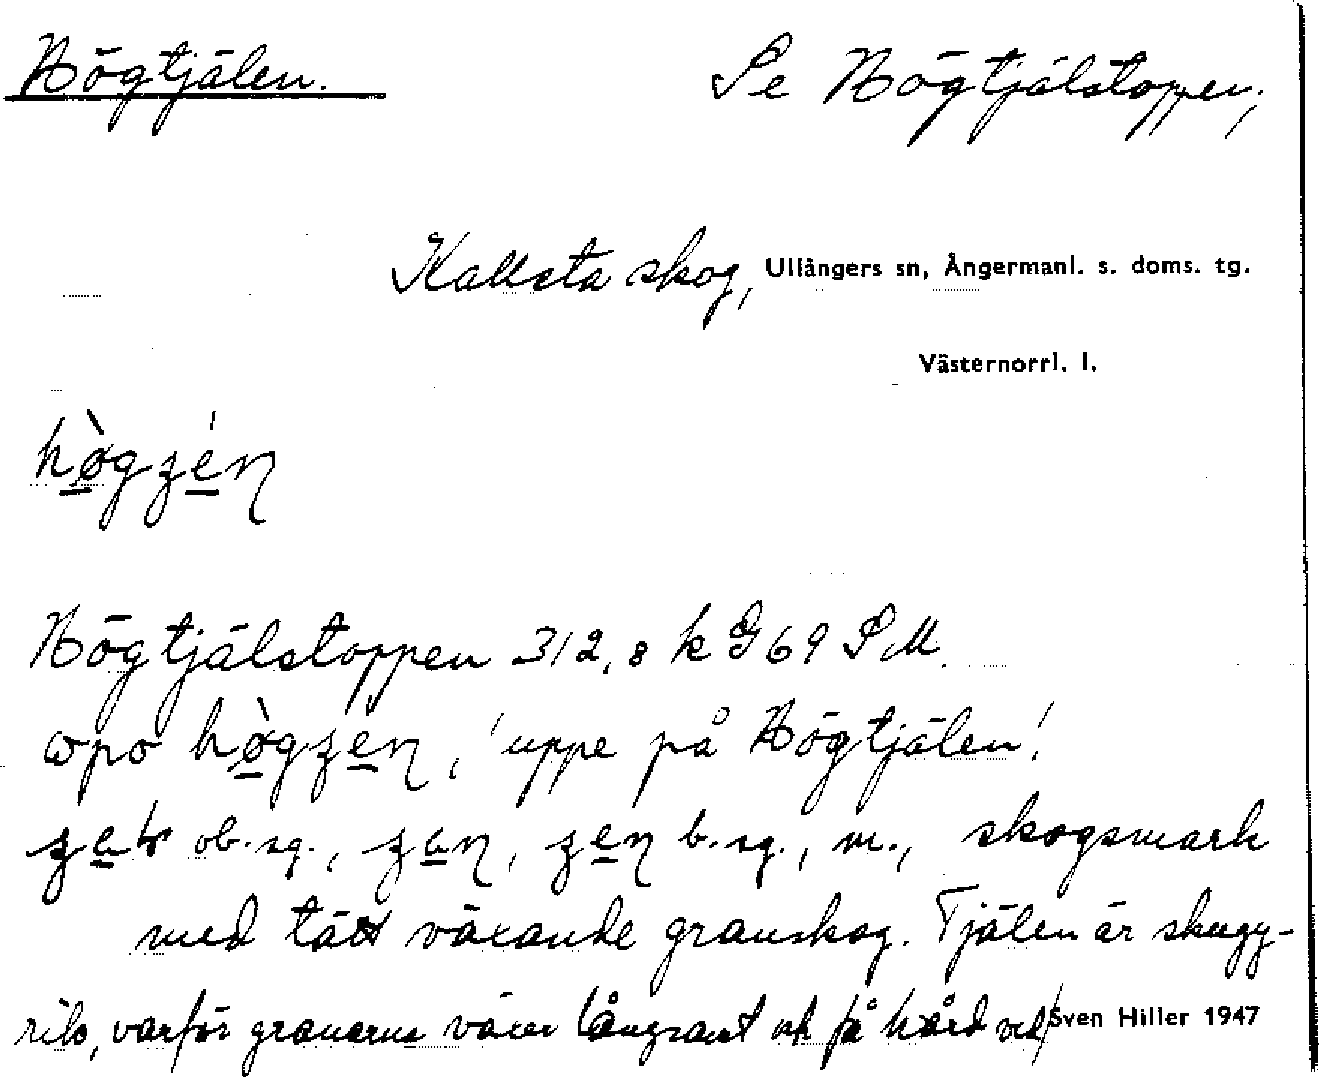 Högtjälen. Se Högtjälstoppen,
Kallsta skog, Ullångers sn, Ångermanl. s. doms. tg.
Västernorrl. l.
hø̀gzén
Högtjälstoppen 312,8 k G 69 SM.
hø̀gzen, 'uppe på Högtjälen'.
ob. sg., zen b. sg., m., skogsmark
med tätt växande granskog. Tjälen är skugg-
rik, varför granarna växer långsamt och få hård ved
Sven Hiller 1947